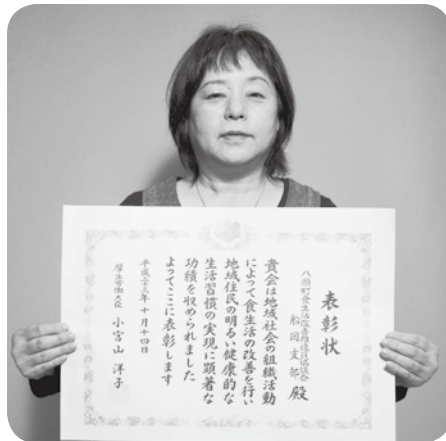 表彰状
八頭町食生活改善推進員協議会
船岡支部 殿
貴会は地域社会の組織活動
によって食生活の改善を行い
地域住民の明るい健康的な
生活習慣の実現に顕著な
功績を収められました
よってここに表彰します
平成二十三年十月十四日
厚生労働大臣 小宮山洋子